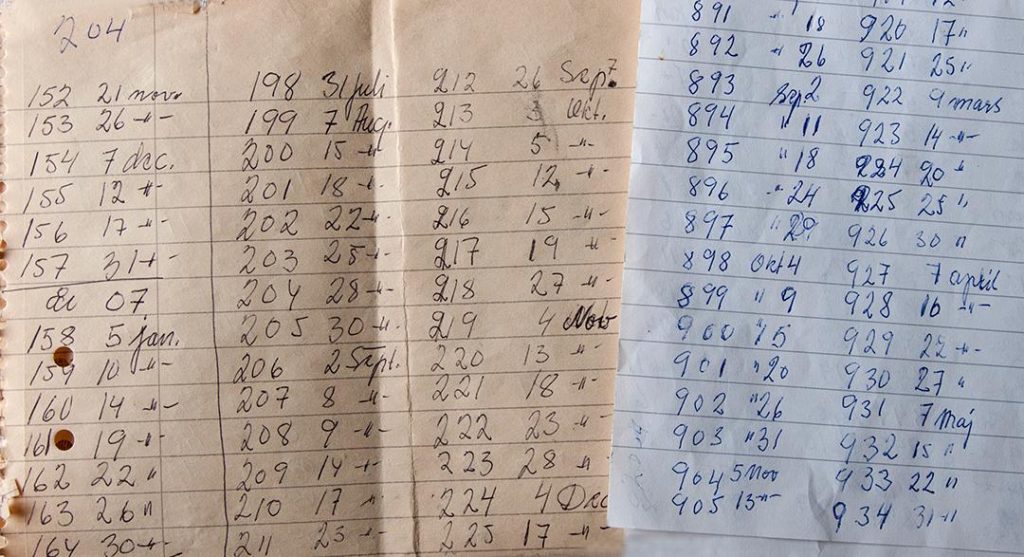 204
152 21 nov.
153 26 -"-
154 7 dec.
155 12 -"-
156 17 -"-
157 31 -"-
år 07
158 5 jan.
159 10 -"-
160 14 -"-
161 19 -"-
162 22 "
163 26 "
164 30 -"-
198 31 juli
199 7 Aug.
200 15 -"-
201 18 -"-
202 22 -"-
203 25 -"-
204 28 -"-
205 30 -"-
206 2 Sept.
207 8 -"-
208 9 -"-
209 14 -"-
210 17 -"-
211 23 -"-
212 26 Sept.
213 3 Okt.
214 5 -"-
215 12 -"-
216 15 -"-
217 19 -"-
218 27 -"-
219 4 Nov
220 13 -"-
221 18 -"-
222 23 -"-
223 28 -"-
224 4 Dec
225 17 -"-
891 " 18
892 " 26
893 sep 2
894 " 11
895 " 18
896 " 24
897 " 29
898 okt 4
899 " 9
900 " 15
901 " 20
902 " 26
903 " 31
904 5 nov
905 13 -"-
920 17 "
921 25 "
922 9 mars
923 14 -"-
924 20 "
925 25 "
926 30 "
927 7 april
928 16 -"-
929 22 -"-
930 27 "
931 7 maj
932 15 "
933 22 "
934 31 -"-